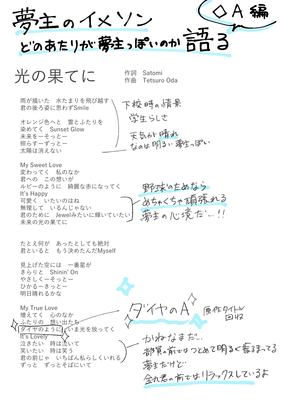 夢主のイメソン
◇A編
どのあたりが夢主っぽいのか語る
光の果てに
作詞 Satomi
作曲 Tetsuro Oda
雨が描いた 水たまりを飛び越す
君の後ろ姿に思わずSmile
下校時の情景
学生らしさ
オレンジ色へと 雲とふたりを
染めてく Sunset Glow
未来をーそっとー
照らすーずっとー
太陽は消えない
天気が晴れ
なのは明るい夢主っぽい
My Sweet Love
変わってく 私のなか
君への この想いが
ルビーのように 綺麗な赤になってく
It's Happy
可愛く いたいのはね
無理して いるんじゃない
君のために Jewelみたいに輝いていたい
未来の光の果てに
野球のためなら
めちゃくちゃ頑張れる
夢主の心境だ…!!
たとえ何が あったとしても絶対
君といると もう決めたんだMyself
見上げた空には 一番星が
きらりと Shinin' On
やさしくーそっとー
ひかるーきっとー
明日晴れるかな
My True Love
増えてく 心のなか
ふたりの 想い出たち
ダイヤのように いま光を放ってく
It's Lovely
泣きたい 時は泣いて
笑いたい 時は笑う
君の前じゃ いちばん私らしくいれる
ずっと ずっとそばにいて
ダイヤのA
原作タイトル
回収
かねなまだ…
部員の前ではつとめて明るく振る舞ってる
夢主だけど…
金丸君の前ではリラックスしているよ